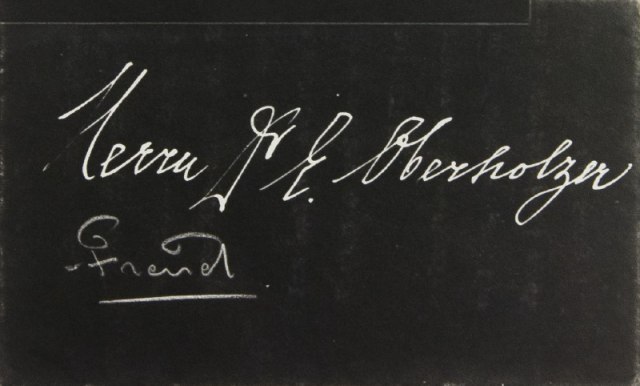 Herrn Dr E. Oberholzer
Freud